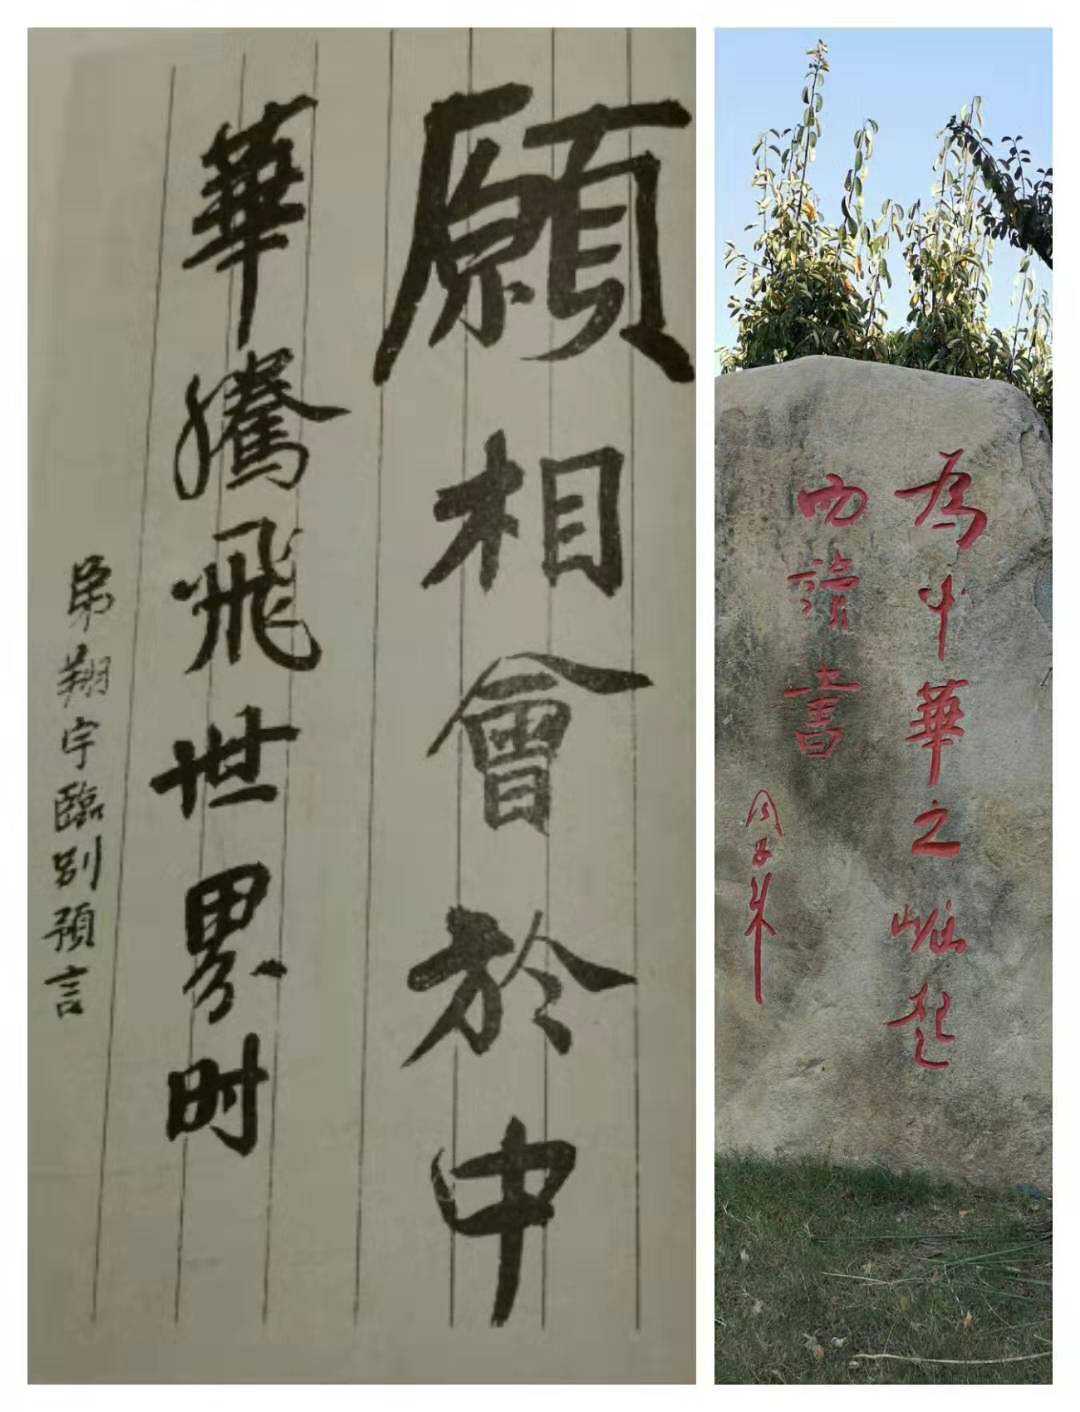 願相會於中
華騰飛世界时
弟翔宇臨別預言
为中華之崛起
而讀書
周恩来